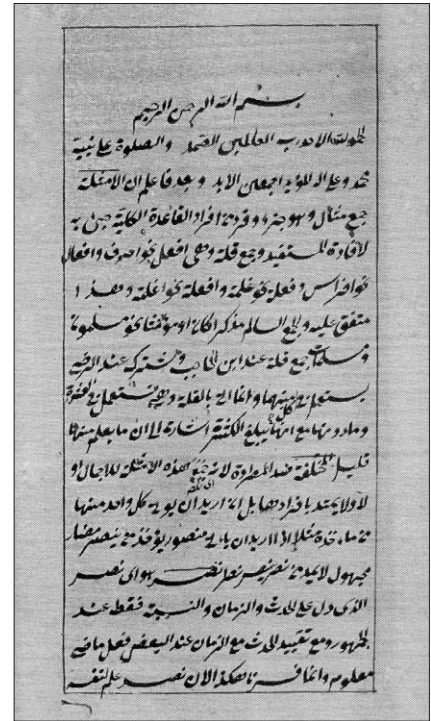 بسم الله الرحمن الرحيم
الحمد لله الاحد رب العالمين الصمد والصلوة على نبيه
محمد وعلى اله المؤيد اجمعين الابد وبعد فاعلم ان الامثلة
جمع مثال وهو جزء وفرد من افراد القاعدة الكلية جئ به
لافادة المستفيد وجمع قلة وهى افعل نحو احرف وافعال
نحو افراس وفعلة نحو غلمة وافعلة نحو اغلمة وهذا
متفق عليه والجمع السالم مذكرا كان او مؤنثا نحو مسلمون
ومسلمات جمع قلة عند ابن الحاجب ومشتركة عند الرضى
يستعمل فى كل منهما وانما اتى بالقلة وهى يستعمل فى العشرة
وما دونها مع انها يبلغ الكثرة اشارة الى ان ما يعلم منها
قليل المختلفة ضد المطردة لانه جئ بهذه الامثلة للاجمال او
لا ولا يعتد بافرادها بل اذا اريد ان يؤتى كل واحد منها
من ماخذه مثلا اذا اريد ان يأتى منصور يؤخذ من ينصر مضارع
مجهول لا يؤخذ من نصر ينصر نصرا نصر هو اى نصر
الذى دل على الحدث والزمان والنسبة فقط عند
الجمهور ومع تقييد الحدث مع الزمان عند البعض فعل ماضى
معلوم وانما فسرنا هكذا لان نصر علم لنفسه